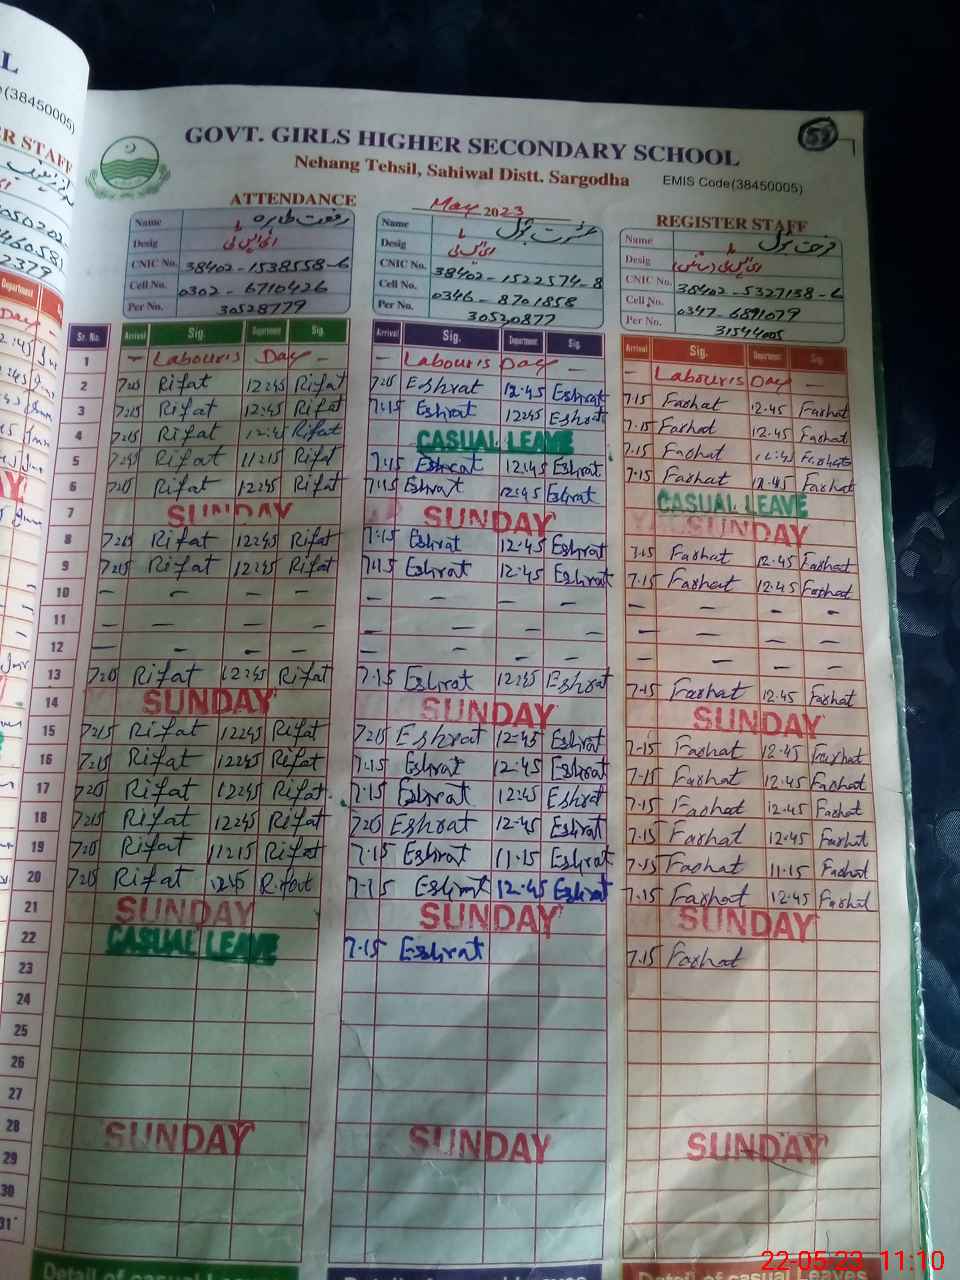 L
(38450005)
R STAFF
GOVT. GIRLS HIGHER SECONDARY SCHOOL
Nehang Tehsil, Sahiwal Distt. Sargodha
EMIS Code(38450005)
ATTENDANCE May 2023 REGISTER STAFF
Name رفعت طاہرہ
Desig
CNIC No. 38402-1538558-6
Cell No. 0302-6710426
Per No. 30528779
Name عشرت بتول
Desig
CNIC No. 38402-1522574-8
Cell No. 0346-8701858
Per No. 30520877
Name فرحت بتول
Desig
CNIC No. 38402-5327138-6
Cell No. 0347-6591079
Per No. 31594005
Sr. No. Arrival Sig. Department Sig. Arrival Sig. Department Sig. Arrival Sig. Department Sig.
1 - Labouris Day - - Labouris Day - - Labouris Day -
2 7:15 Rifat 12:45 Rifat 7:15 Eshrat 12.45 Eshrat 7.15 Farhat 12.45 Farhat
3 7:15 Rifat 12:45 Rifat 7.15 Eshrat 12.45 Eshrat 7.15 Farhat 12.45 Farhat
4 7:15 Rifat 12:45 Rifat CASUAL LEAVE 7.15 Farhat 12.45 Farhat
5 7:15 Rifat 11:15 Rifat 7.15 Eshrat 12.45 Eshrat 7.15 Farhat 12.45 Farhat
6 7:15 Rifat 12:45 Rifat 7.15 Eshrat 12.45 Eshrat CASUAL LEAVE
7 SUNDAY SUNDAY SUNDAY
8 7:15 Rifat 12:45 Rifat 7.15 Eshrat 12.45 Eshrat 7.15 Farhat 12.45 Farhat
9 7:15 Rifat 12:45 Rifat 7.15 Eshrat 12.45 Eshrat 7.15 Farhat 12.45 Farhat
10 - - - - - - - - - - - -
11 - - - - - - - - - - - -
12 - - - - - - - - - - - -
13 7:15 Rifat 12:45 Rifat 7.15 Eshrat 12:45 Eshrat 7.15 Farhat 12.45 Farhat
14 SUNDAY SUNDAY SUNDAY
15 7:15 Rifat 12:45 Rifat 7:15 Eshrat 12.45 Eshrat 7.15 Farhat 12.45 Farhat
16 7:15 Rifat 12:45 Rifat 7.15 Eshrat 12.45 Eshrat 7.15 Farhat 12.45 Farhat
17 7:15 Rifat 12:45 Rifat 7.15 Eshrat 12.45 Eshrat 7.15 Farhat 12.45 Farhat
18 7:15 Rifat 12:45 Rifat 7:15 Eshrat 12.45 Eshrat 7.15 Farhat 12.45 Farhat
19 7:15 Rifat 11:15 Rifat 7.15 Eshrat 11.15 Eshrat 7.15 Farhat 11.15 Farhat
20 7:15 Rifat 12:45 Rifat 7.15 Eshrat 12.45 Eshrat 7.15 Farhat 12.45 Farhat
21 SUNDAY SUNDAY SUNDAY
22 CASUAL LEAVE 7.15 Eshrat 7.15 Farhat
23
24
25
26
27
28 SUNDAY SUNDAY SUNDAY
29
30
31
22-05-23 11:10